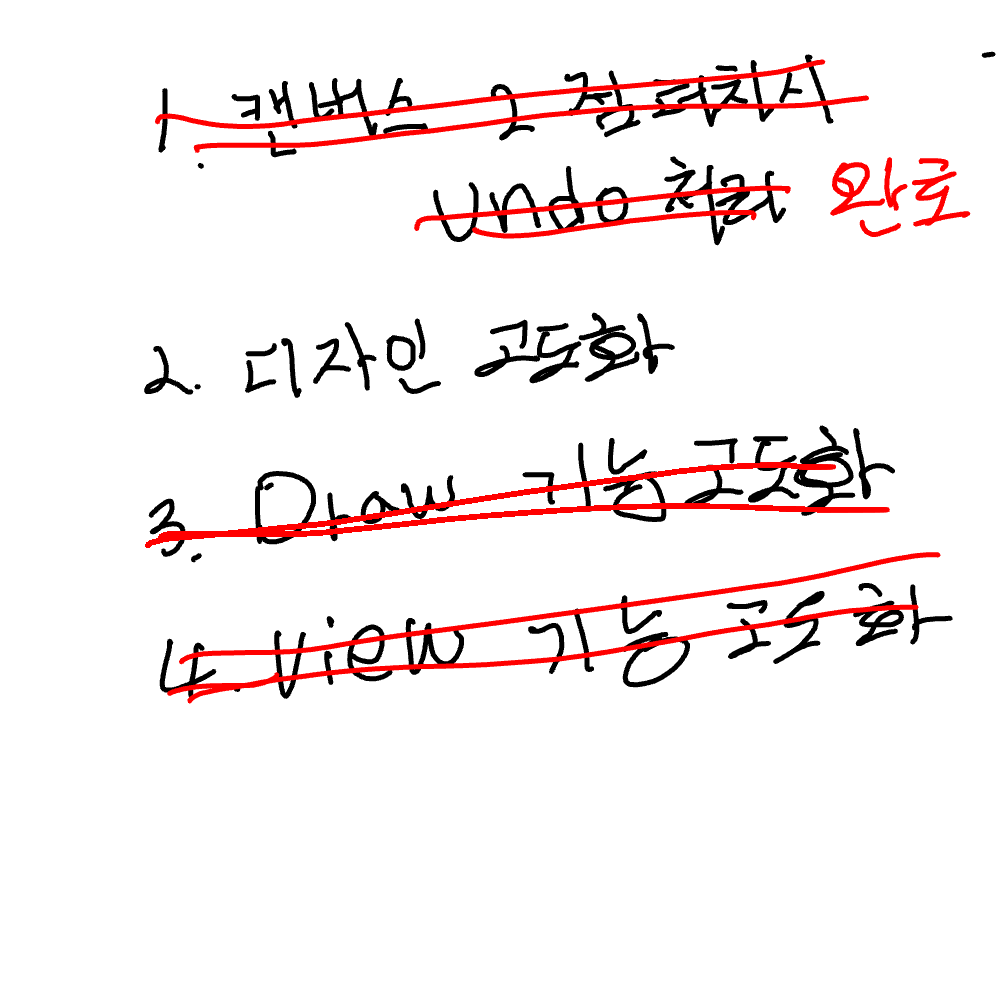 1. 캔버스 2 점 터치시
Undo 처리 완료
2. 디자인 고도화
3. Draw 기능고도화
4. View 기능 고도화